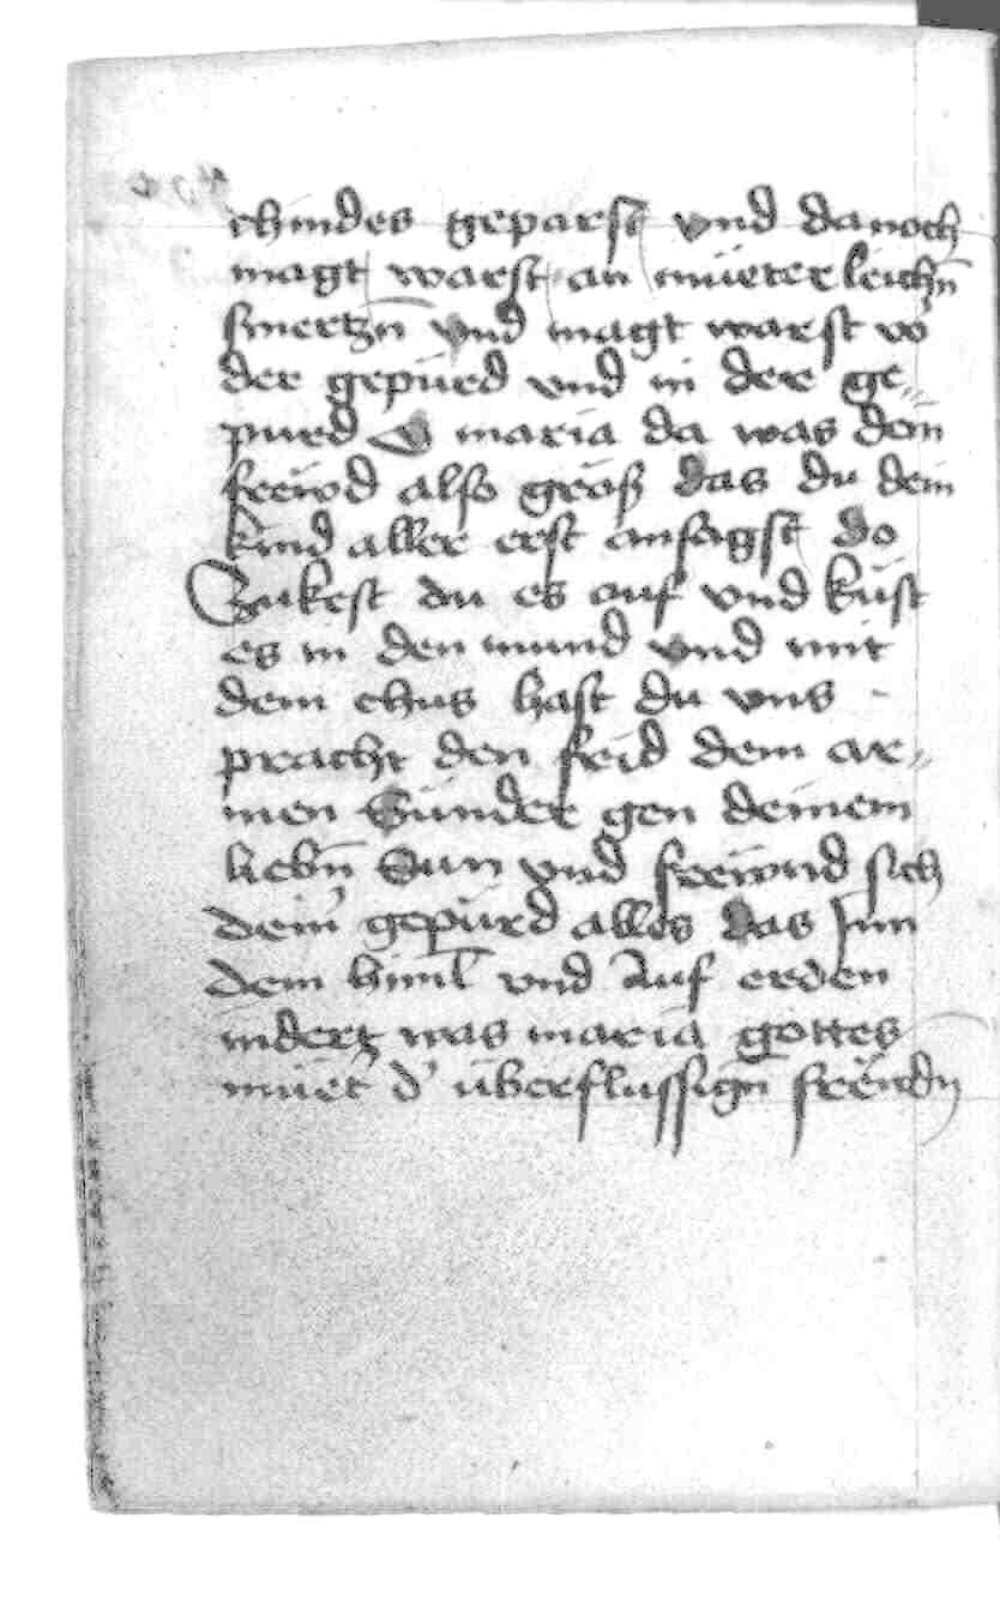 chindes geparst vnd danoch
magt warst an müeterleichn̄
smertzn̄ vnd magt warst vo᷑
der gepürd vnd in der ge⸗
purd O maria da was dein
freẅd also gröſs das du dein
kind aller erst ansagst do
Zukest du es auf vnd küst
es in den mund vnd mit
dem chus hast du vns
pracht den frid dem ar⸗
men Sünder gen deinem
liebn̄ Sun vnd freẅnd sich
dein᷑ gepürd alles das Inn
dem himl̄ vnd Auf erden
indert was maria gottes
müet᷑ d᷑ überflüssign̄ freẅdn